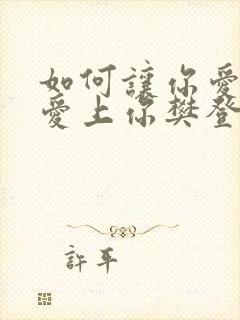 如何讓你愛
愛上你樊登
許平